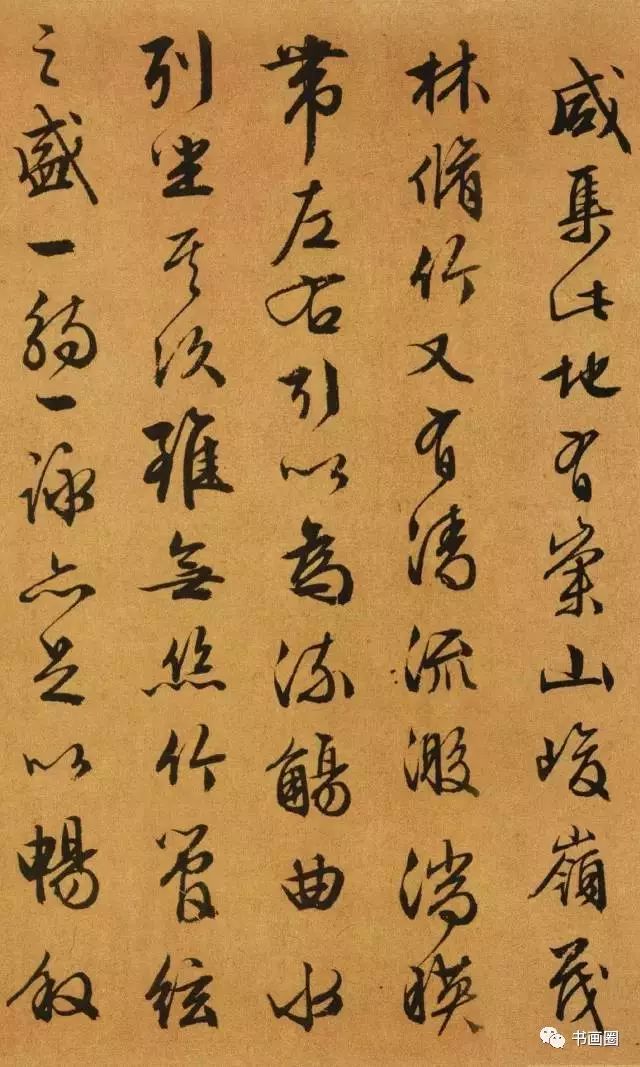 咸集此地有崇山峻嶺茂
林脩竹又有清流激湍暎
帶左右引以為流觴曲水
列坐其次雖無絲竹管絃
之盛一觴一詠亦足以暢敘
书画圈